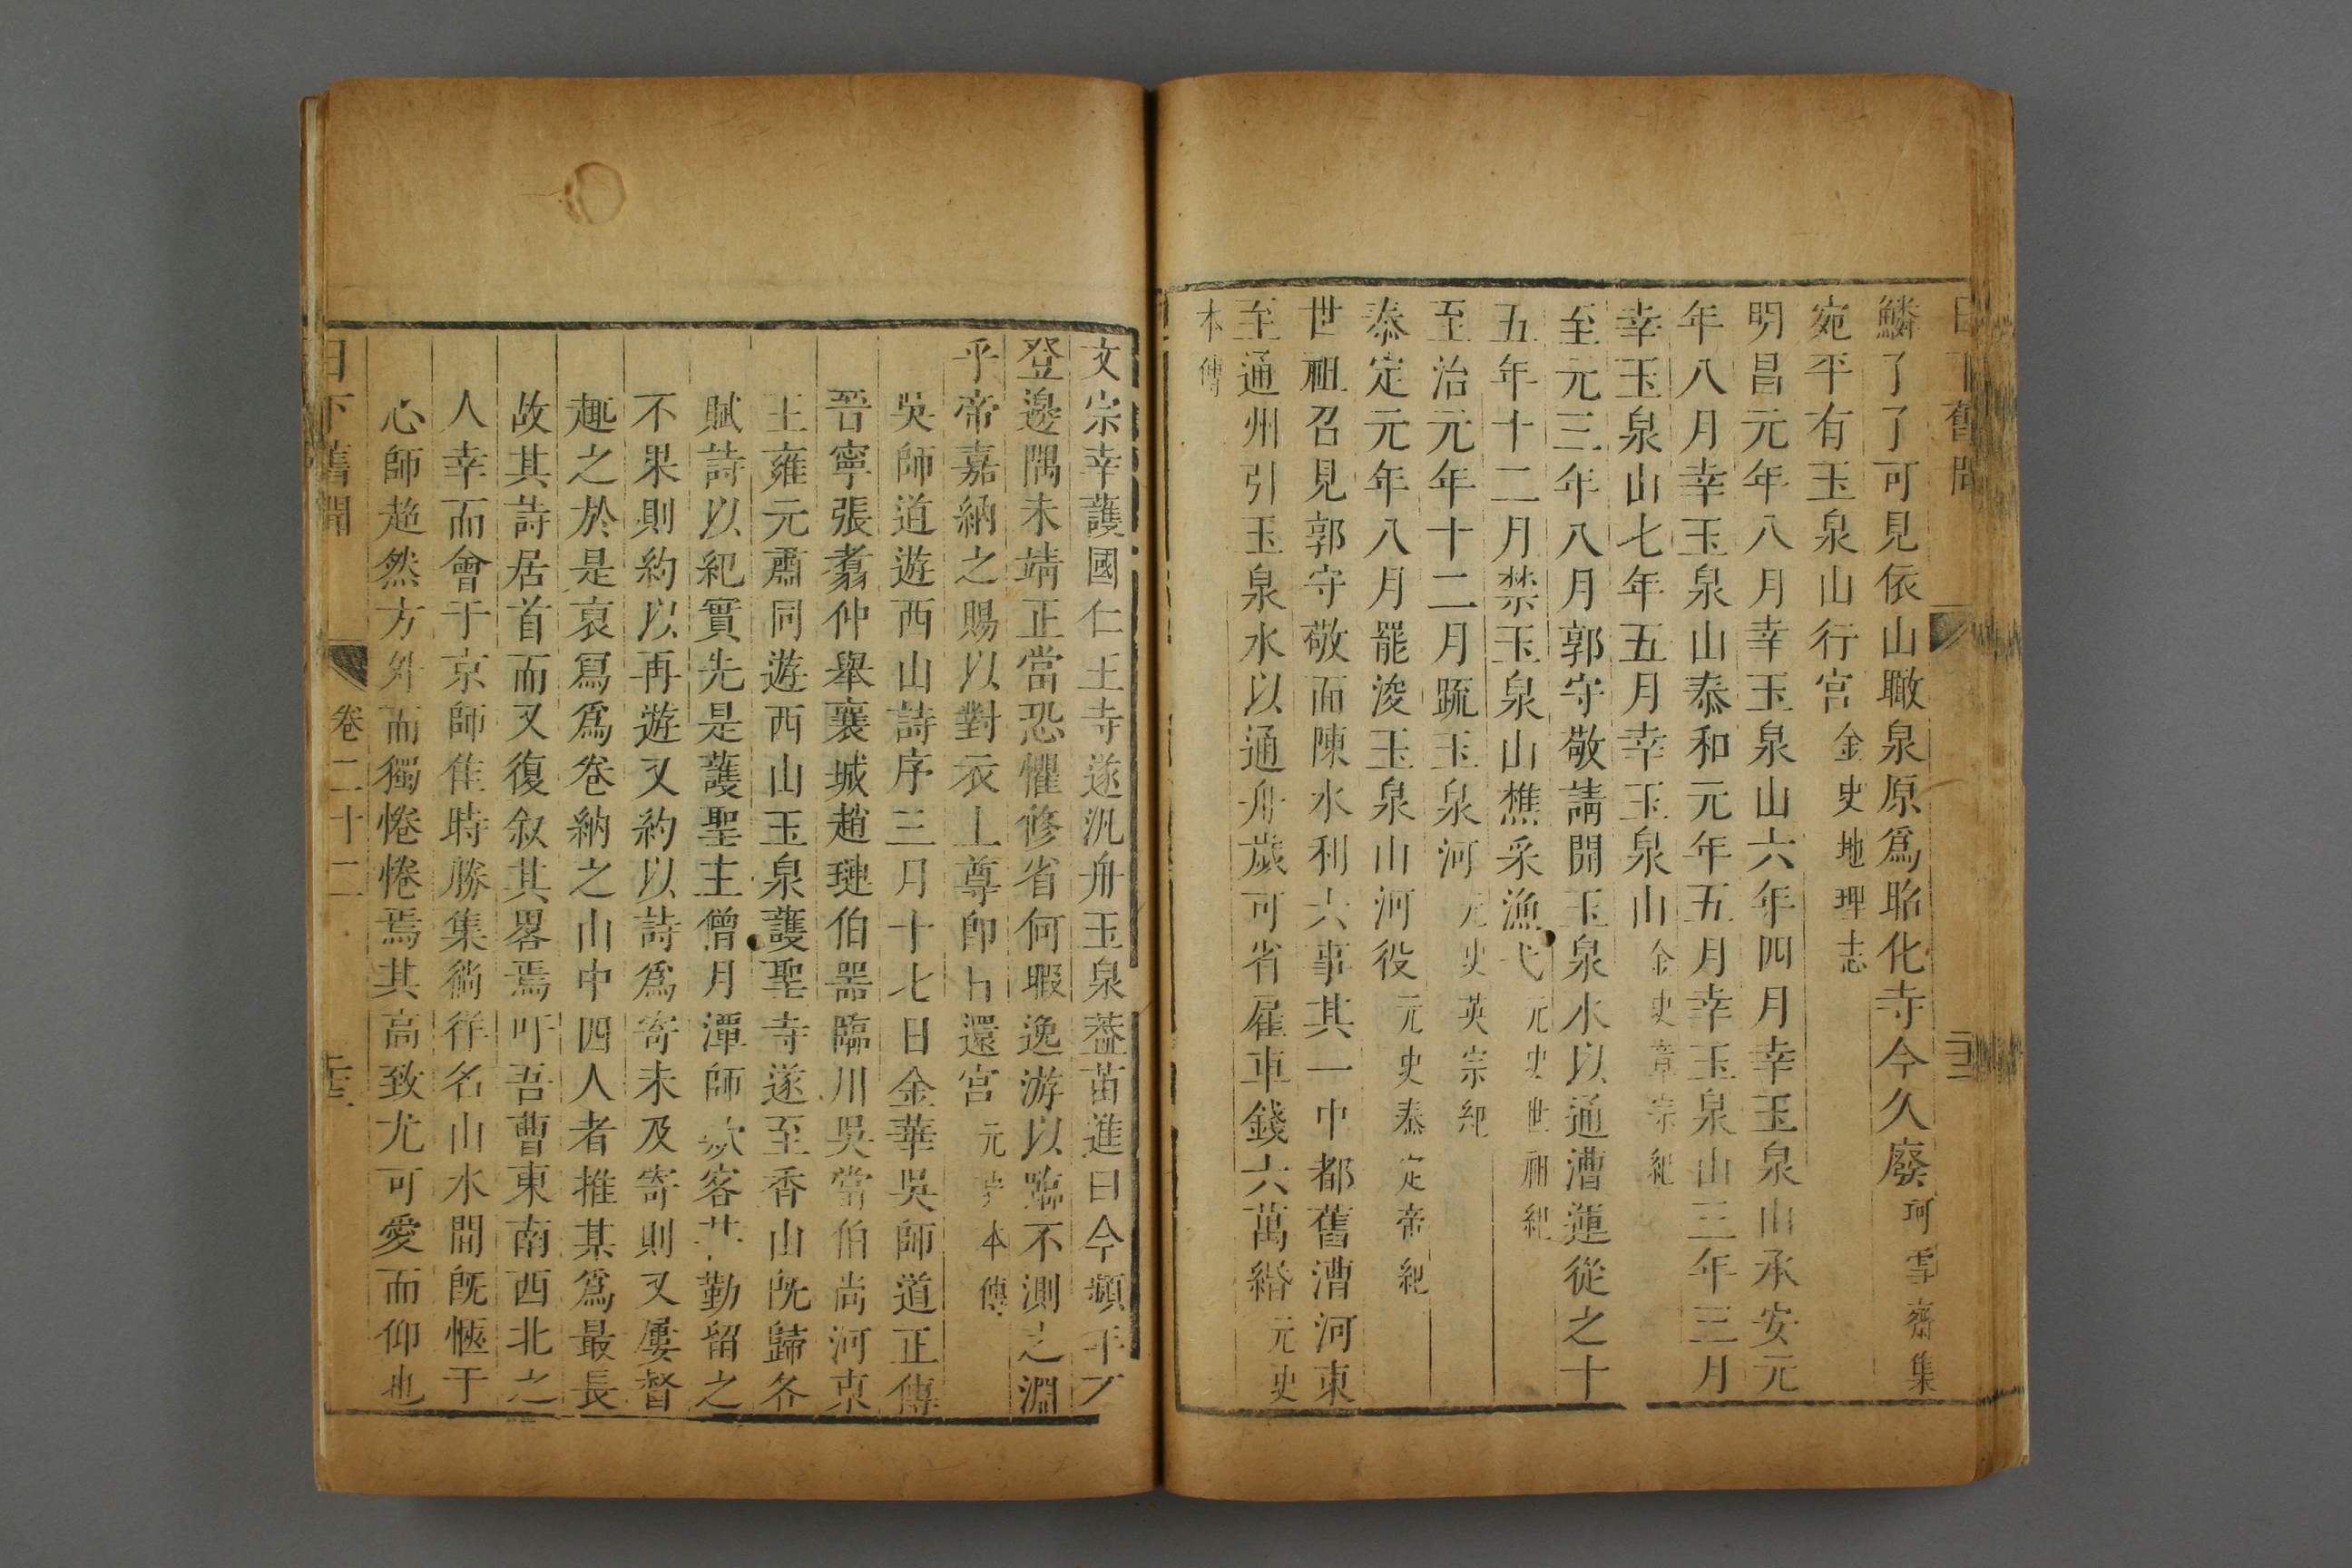 日下舊聞
鱗了了可見依山瞰泉原爲昭化寺今久廢珂雪齋集
宛平有玉泉山行宮金史地理志
明昌元年八月幸玉泉山六年四月幸玉泉山承安元
年八月幸玉泉山泰和元年五月幸玉泉山三年三月
幸玉泉山七年五月幸玉泉山金史章宗紀
至元三年八月郭守敬請開玉泉水以通漕運從之十
五年十二月禁玉泉山樵采漁弋元史世祖紀
至治元年十二月疏玉泉河元史英宗紀
泰定元年八月罷浚玉泉山河役元史泰定帝紀
世祖召見郭守敬面陳水利六事其一中都舊漕河東
至通州引玉泉水以通舟歲可省雇車錢六萬緡元史
本傳
文宗幸護國仁王寺遂汎舟玉泉蓋苗進曰今頻年不
登邊隅未靖正當恐懼修省何暇逸游以臨不測之淵
乎帝嘉納之賜以對衣上尊卽日還宮元史本傳
吳師道遊西山詩序三月十七日金華吳師道正傳
晉寧張翥仲舉襄城趙璉伯噐臨川吳當伯尚河東
王雍元肅同遊西山玉泉護聖寺遂至香山旣歸各
賦詩以紀實先是護聖主僧月潭師欵客甚勤留之
不果則約以再遊又約以詩爲寄未及寄則又屢督
趣之於是裒寫爲卷納之山中四人者推某爲最長
故其詩居首而又復敘其畧焉吁吾曹東南西北之
人幸而會于京師隹時勝集徜徉名山水間旣愜于
心師超然方外而獨惓惓焉其高致尤可愛而仰也
日下舊聞 卷二十二